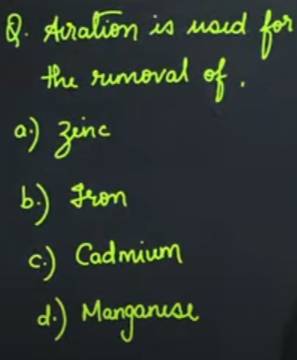 Q. Airation is used for
the removal of.
a.) Zinc
b.) Iron
c.) Cadmium
d.) Manganese